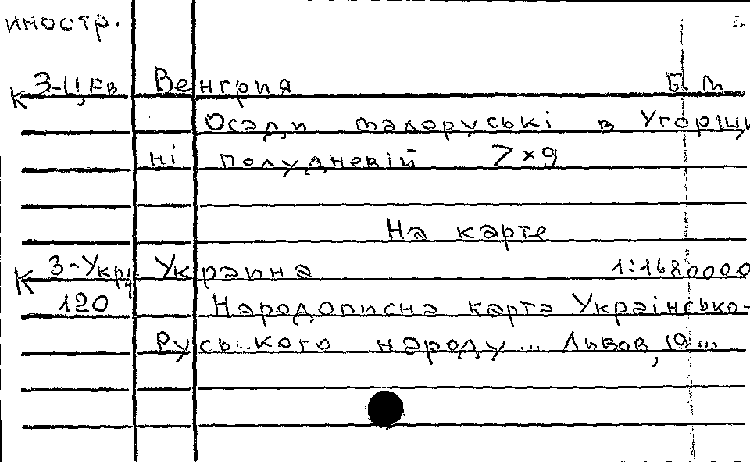 иностр.
К 3-Ц,Ев Венгрия Б.м.
Осади малоруські в Угорщи
ні полудневій 7х9
На карте
К 3-Укр Украина 1:1680000
120 Народописна карта Українсько-
Руського народу... Львов, 19...